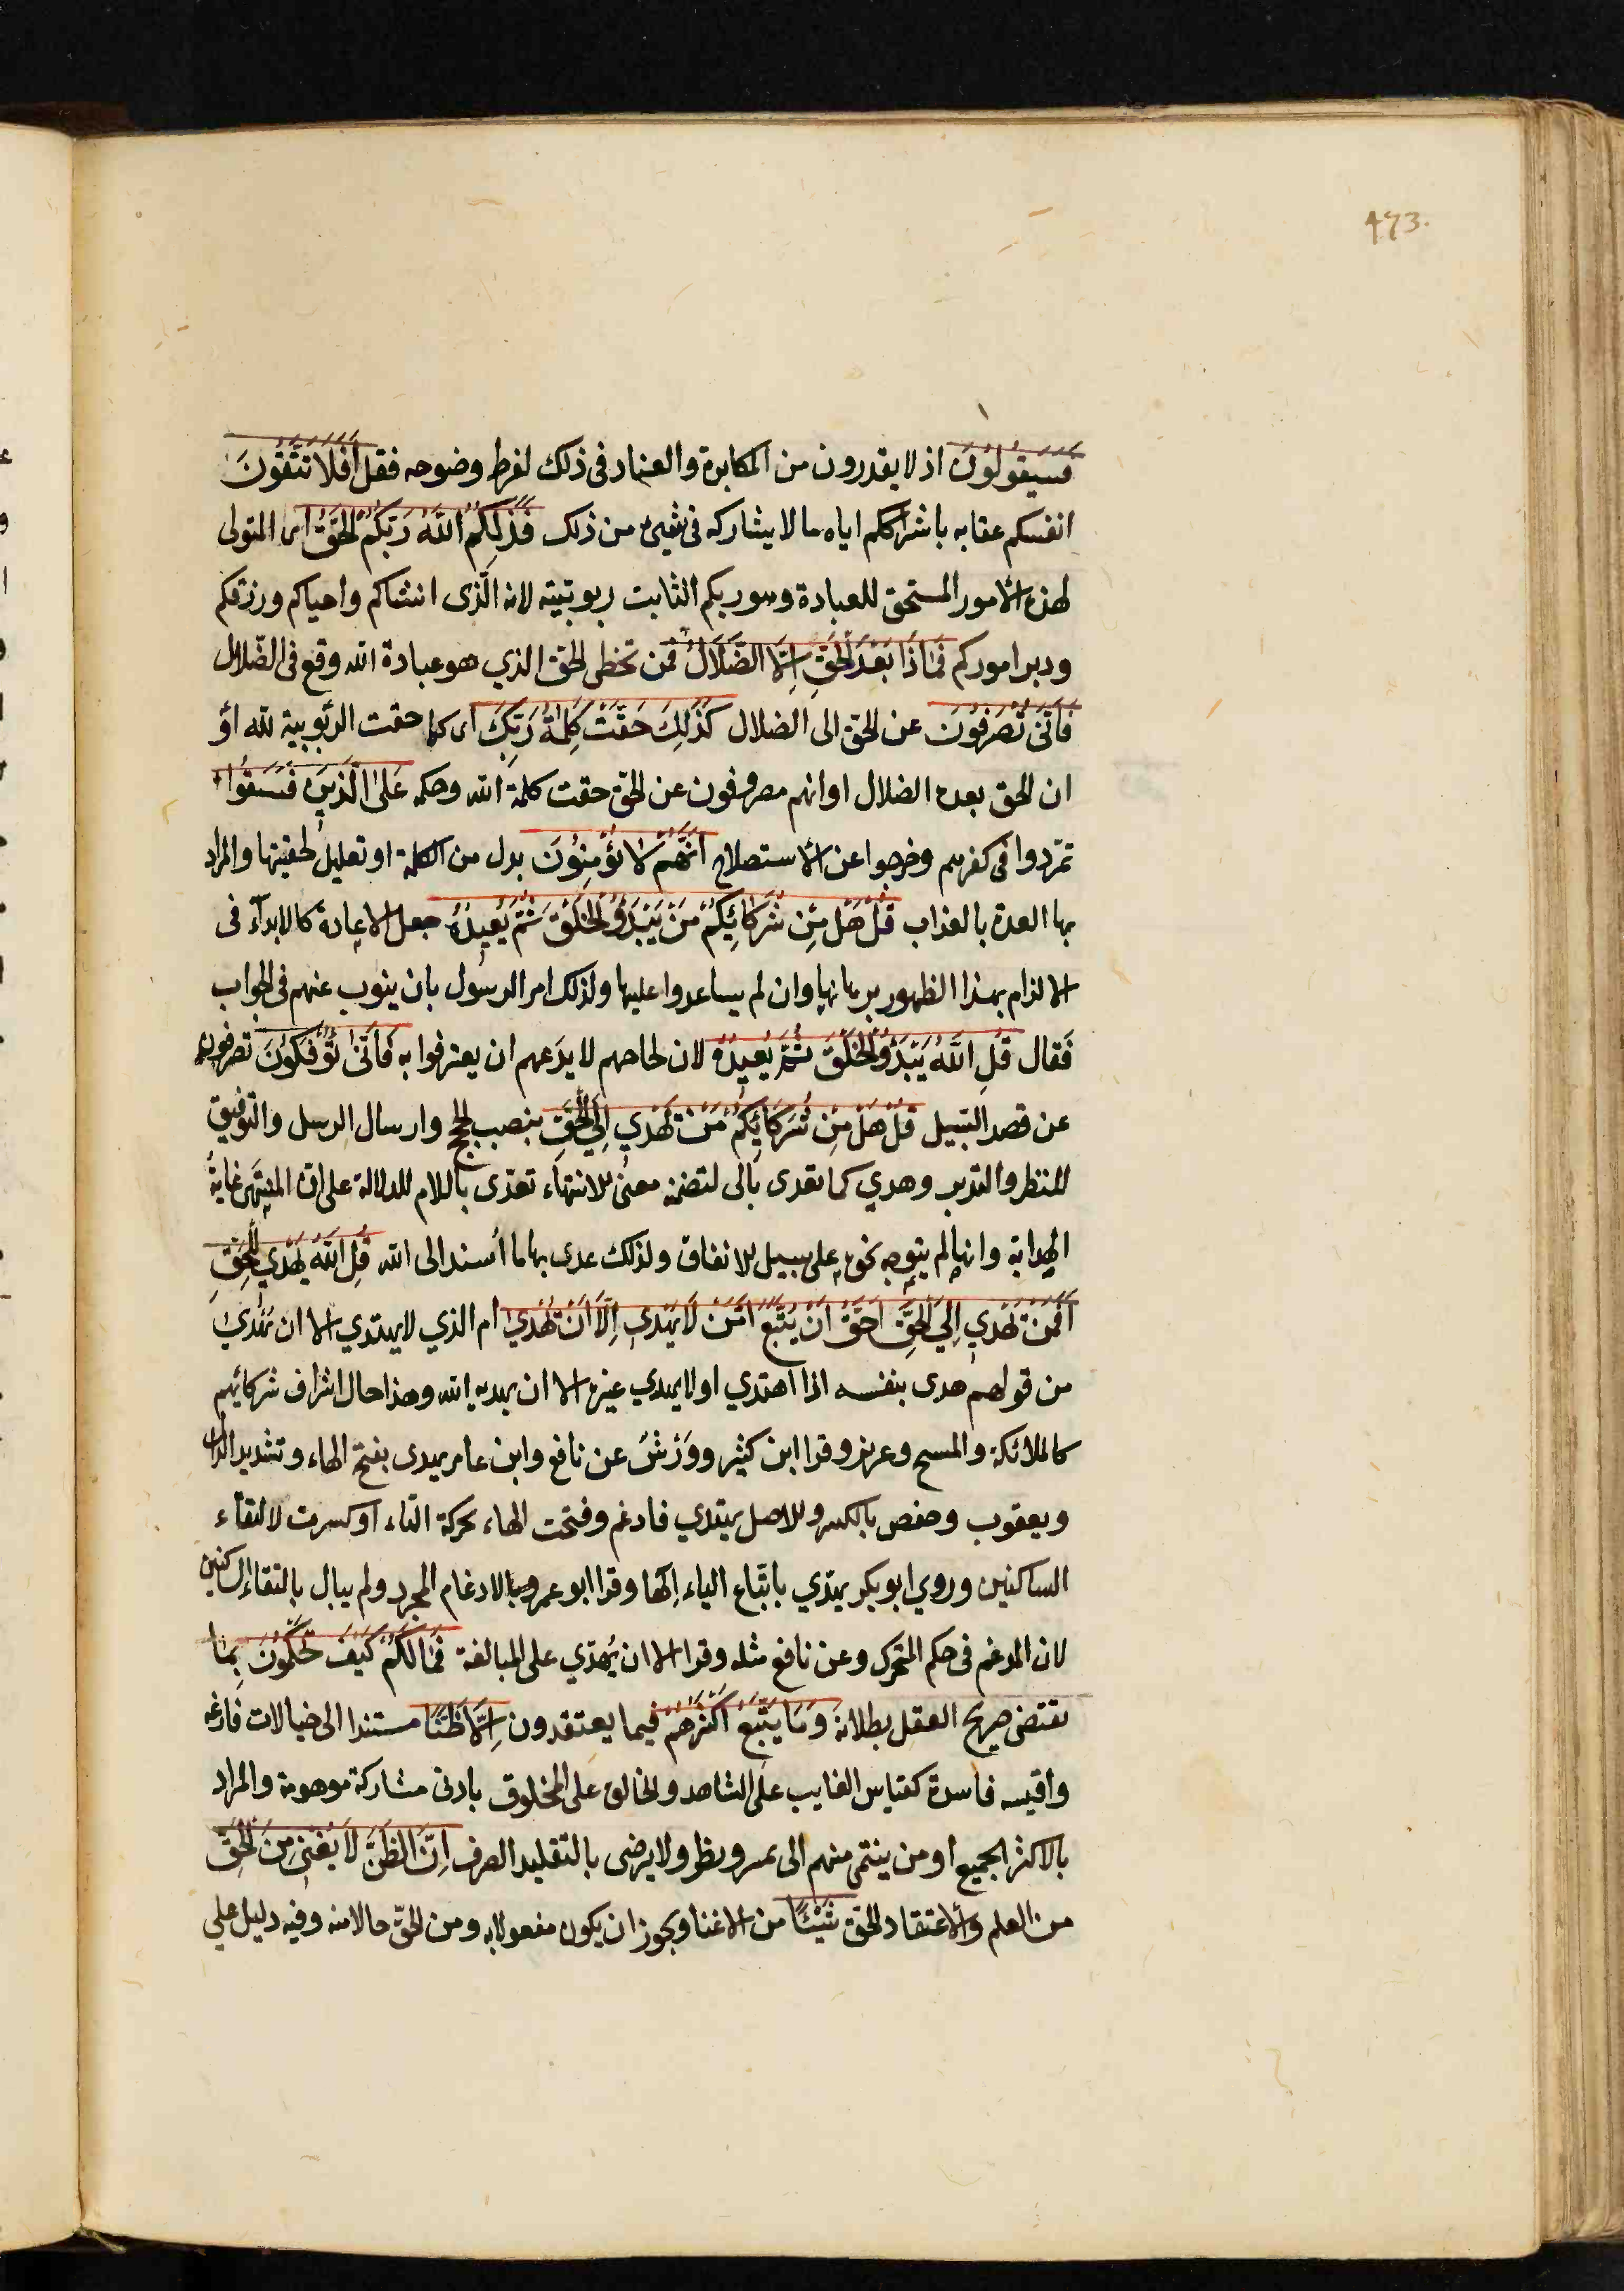 473.
فَسَيَقُولُونَ اذ لا يقدرون من المكابرة والعناد فى ذلك لفرط وضوحه فقل أَفَلَا تَتَّقُونَ
انفسكم عقابه باشراككم اياه ما لا يشاركه فى شيئ من ذلك فَذَلِكُمُ اللَّهُ رَبُّكُمُ الْحَقُّ اى المتولى
لهذه الامور المستحق للعبادة وهو ربكم الثابت ربوبتيته لانه الّذى انشاكم واحياكم ورزقكم
ودبر اموركم فَمَاذَا بَعْدَ الْحَقِّ اِلَّا الضَّلَالُ فمن تخطى الحق الذي هو عبادة الله وقع فى الضّلال
فَأَنّىٰ تُصْرَفُونَ عن الحق الى الضلال كَذَلِكَ حَقَّتْ كَلِمَةُ رَبِّكَ اى كما حقت الربّوبية لله اوْ
ان الحق بعده الضلال او انهم مصروفون عن الحق حقت كلمة الله وحكمه عَلَى الَّذِينَ فَسَقُوا
تمرّدوا فى كفرهم وخرجوا عن الاستصلاح اَنَّهُمْ لَا يُؤْمِنُونَ بدل من الكلمة او تعليل لحقيتها والمراد
بها العدة بالعذاب قُلْ هَلْ مِنْ شُرَكَائِكُمْ مَنْ يَبْدَؤُ الْخَلْقَ ثُمَّ يُعِيدُهُ جعل الاعادة كالابدآء فى
الالزام بهذا الظهور برهانها وان لم يساعدوا عليها ولذلك امر الرسول بان ينوب عنهم فى الجواب
فَقال قُلِ اللَّهُ يَبْدَؤُ الْخَلْقَ ثُمَّ يُعِيدُهُ لان لجاجهم لا يدَعهم ان يعترفوا به فَأَنّىٰ تُؤْفَكُونَ تصرفون
عن قصد السّبيل قُلْ هَلْ مِنْ شُرَكَائِكُمْ مَنْ يَهْدِي اِلَى الْحَقِّ بنصب الحجج وارسال الرسل والتوفيق
للنظر والتدبر وهدي كما تعدى بالى لتضمنه معنى الانتهاء تعدّى باللام للدلالة على ان المنتهى غاية
الهداية وانها لم يتوجه نحوه على سبيل الاتفاق ولذلك عدى بها ما اُسند الى الله قُلِ اللَّهُ يَهْدِي لِلْحَقِّ
اَفَمَنْ يَهْدِي اِلَى الْحَقِّ اَحَقُّ اَنْ يُتَّبَعَ اَمَّنْ لَا يَهِدِّي اِلَّا اَنْ يُهْدَىٰ ام الذي لا يهتدي الا ان يُهْدىٰ
من قولهم هدى بنفسه اذا اهتدي او لا يهدي غيره الا ان يهديه الله وهذا حال اشراف شركائهم
كالملائكة والمسيح وعزير وقرا ابن كثير ووَرْشُ عن نافع وابن عامر يهدى بفتح الهاء وتشديد الدال
ويعقوب وحفص بالكسر والاصل يهتدي فادغم وفتحت الهاء بحركة التاء او كسرت لالتقآء
الساكنين وروي ابو بكر يهدّي باتّباع الياء الهاء وقرا ابو عمرو بالادغام المجرد ولم يبال بالتقاء الساكنين
لان المدغم فى حكم المتحرك وعن نافع مثله وقرا الا ان يُهدّي على المبالغة فَمَا لَكُمْ كَيْفَ تَحْكُمُونَ بما
يقتضى صريح العقل بطلانه وَمَا يَتَّبِعُ اَكْثَرُهُمْ فيما يعتقدون اِلَّا ظَنًّا مستندا الى خيالات فارغه
واقيسه فاسدة كقياس الغايب على الشاهد والخالق على المخلوق بادنى مشاركة موهومة والمراد
بالاكثر الجميع او من ينتمى منهم الى تمييز ونظر ولا يرضى بالتقليد الصرف اِنَّ الظَّنَّ لَا يُغْنِي مِنَ الْحَقِّ
من العلم والاعتقاد الحق شَيْئًا من الاغنا ويجوز ان يكون مفعولا به ومن الحقّ حالا منه وفيه دليل علي